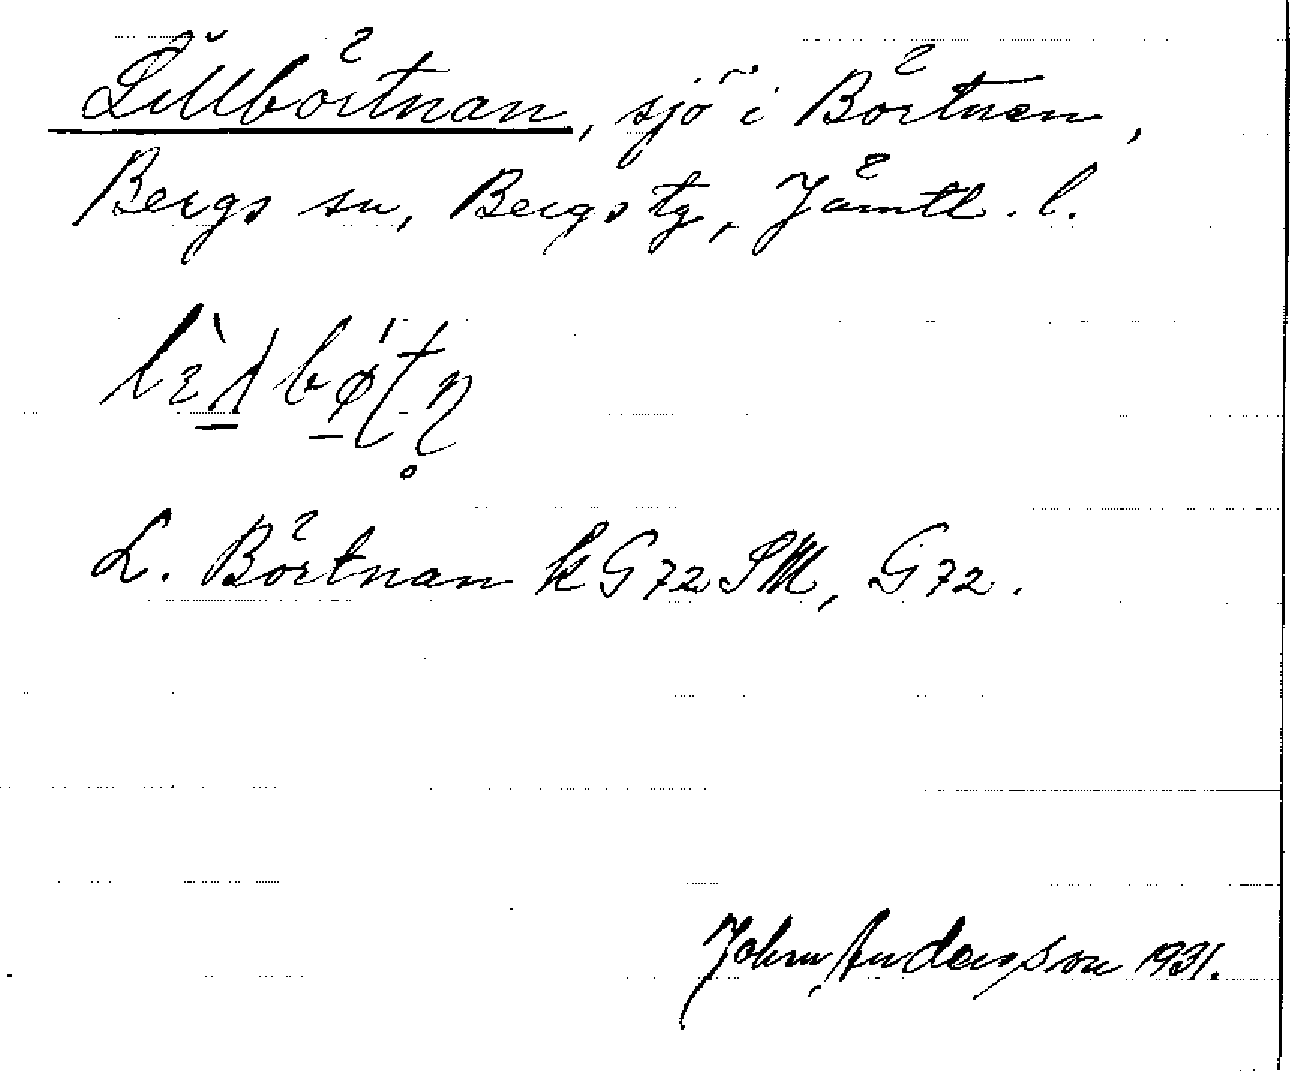 Lillbörtnan, sjö i Börtnen,
Bergs sn, Bergs tg, Jämtl. l.
L. Börtnan k G 72 SM, G 72.
John Andersson 1931.